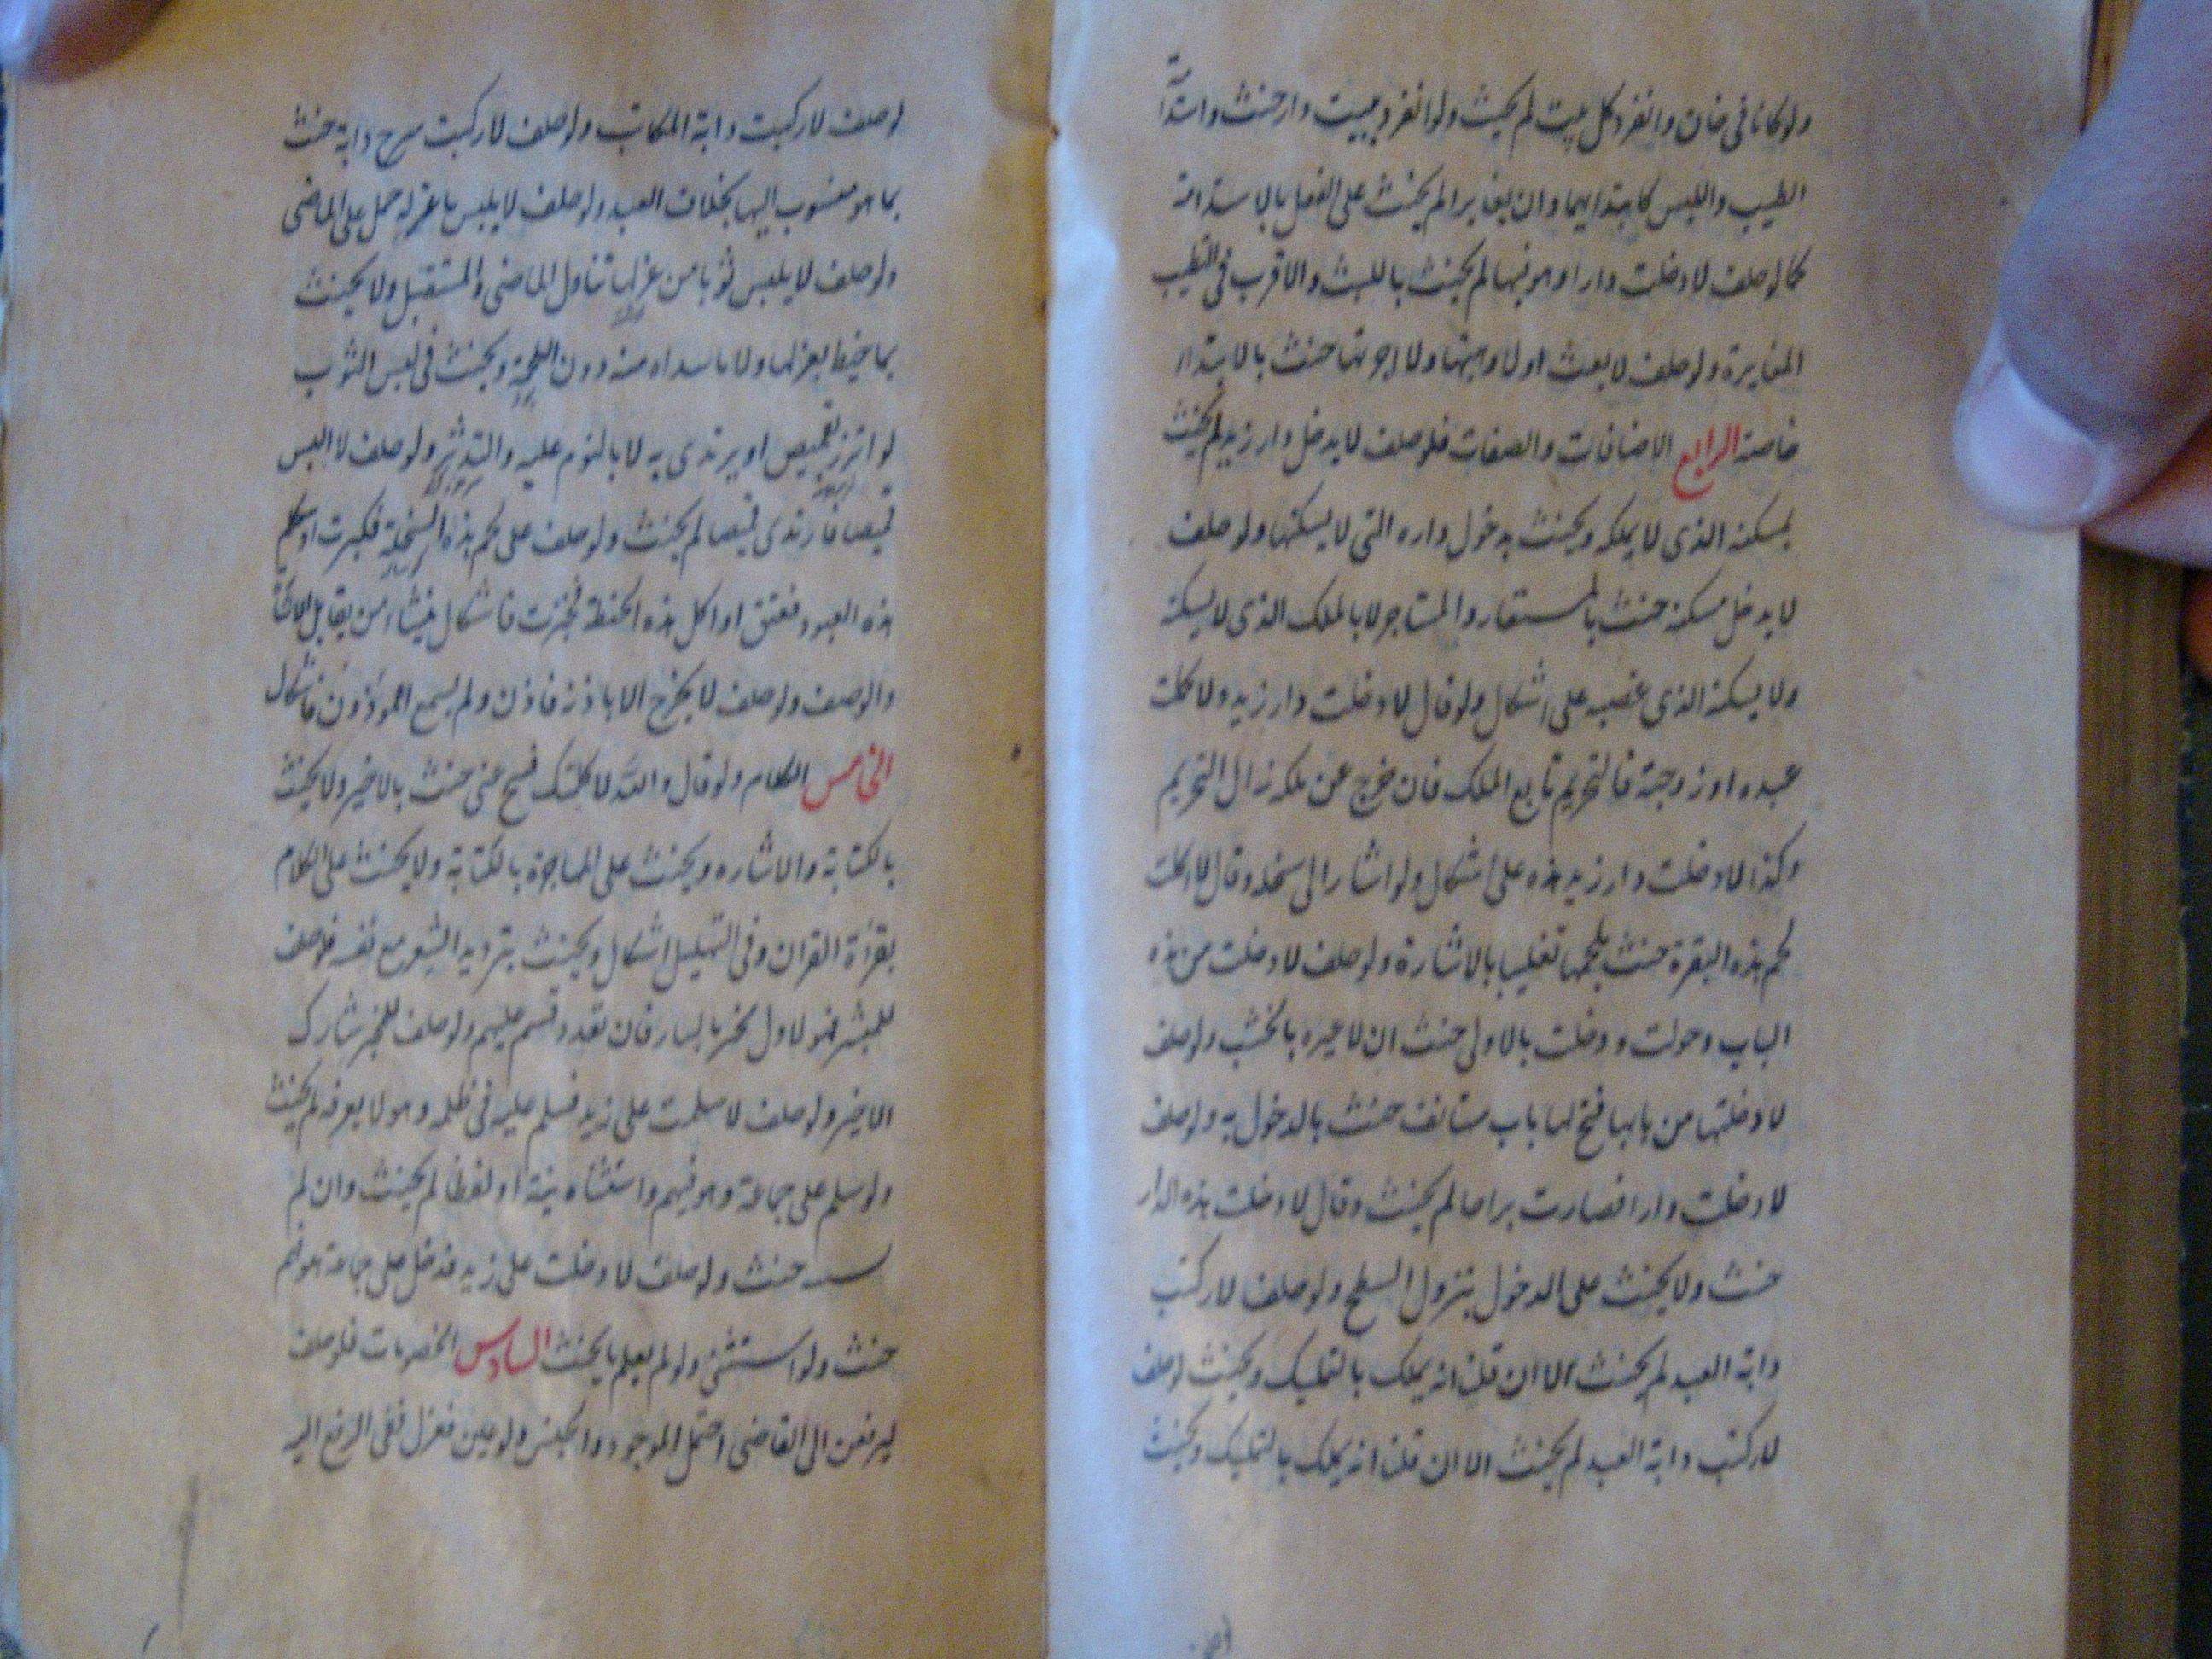 ولو كانا في خان وانفرد كل ببيت لم يحنث ولو انفرد ببيت دار حنث واستدامة
الطيب واللبس كابتدائهما وان يغايرا لم يحنث على الفعل بالاستدامة
كما لو حلف لا دخلت دارا وهو فيها لم يحنث باللبث والاقرب في التطيب
المغايرة ولو حلف لا بعت او لا وهبتها ولا اجرتها حنث بالابتداء
خاصة الرابع الاضافات والصفات فلو حلف لا يدخل دار زيد لم يحنث
بمسكنه الذي لا يملكه ويحنث بدخول داره التي لا يسكنها ولو حلف
لا يدخل مسكنه حنث بالمستعار والمستاجر لا بالملك الذي لا يسكنه
ولا يسكنه الذي غصبه على اشكال ولو قال لا دخلت دار زيد ولا كلمت
عبده او زوجته فالتحريم تابع الملك فان خرج عن ملكه زال التحريم
وكذا لا دخلت دار زيد هذه على اشكال ولو اشار الى سخله وقال لا اكلت
لحم هذه البقرة حنث بلحمها تغليبا بالاشارة ولو حلف لا دخلت من هذه
الباب وحولت ودخلت بالاولى حنث ان لا عبره بالخشب ولو حلف
لا دخلتها من بابها فتح لها باب مستانف حنث بالدخول به ولو حلف
لا دخلت دارا فصارت براحا لم يحنث وقال لا دخلت هذه الدار
حنث ولا يحنث على الدخول بنزول السطح ولو حلف لا ركبت
دابة العبد لم يحنث الا ان قلنا انه يملك بالتمليك ويحنث لو حلف
لا ركبت دابة العبد لم يحنث الا ان قلنا انه يملك بالتمليك ويحنث
لو حلف لا ركبت دابة المكاتب ولو حلف لا ركبت سرج دابة حنث
بما هو منسوب اليها بخلاف العبد ولو حلف لا يلبس ما غزله حمل على الماضي
ولو حلف لا يلبس ثوبا من غزلها تناول الماضي والمستقبل ولا يحنث
بما خيط بغزلها ولا ما سداه منه دون اللحمة ويحنث في لبس الثوب
لو اتزر بقميص او يرتدي به لا بالنوم عليه والتدثر ولو حلف لا البس
قميصا فارتدى قميصا لم يحنث ولو حلف على لحم هذه السخلة فكبرت او كلم
هذه العبد فعتق او اكل هذه الحنطة فخبزت فاشكال ينشاء من تقابل الاشارة
والوصف ولو حلف لا يخرج الا باذنه فاذن ولم يسمع المأذون فاشكال
الخامس الكلام ولو قال والله لا كلمتك فتنح عني حنث بالاخير ولا يحنث
بالكتابة والاشاره ويحنث على المهاجرة بالكتابة ولا يحنث على الكلام
بقرأة القران وفي التهليل اشكال ويحنث بترديد الشعر مع نفسه فلو حلف
للمبشر فهو لاول مخبر بالسار فان تعدد قسم عليهم ولو حلف للمخبر شارك
الاخير ولو حلف لا سلمت على زيد فسلم عليه في ظلمه وهو لا يعرفه لم يحنث
ولو سلم على جماعة وهو فيهم واستثناه بنية او لفظا لم يحنث وان لم
حنث ولو حلف لا دخلت على زيد فدخل على جماعة هو فيهم
حنث ولو استثنى ولو لم يعلم لا يحنث السادس الخصومات فلو حلف
ليرفعن الى القاضي احتمل الموجود والجنس ولو عين فعزل ففي الرفع اليه